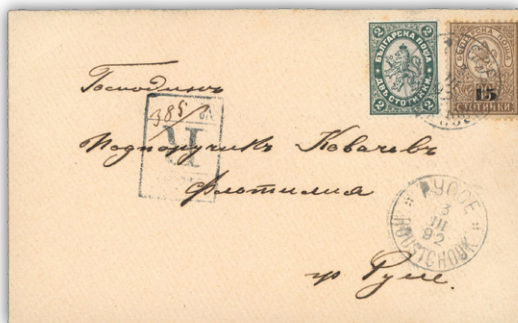 БЪЛГАРСКА ПОЩА
2 2
ДВѢ СТОТИНКИ
15
СТОТИНКИ
Господинъ
385
R
Подпоручикъ Ковачевъ
Флотилия
РУССЕ
3
III
92
ROUSTCHOUK
гр Руссе.